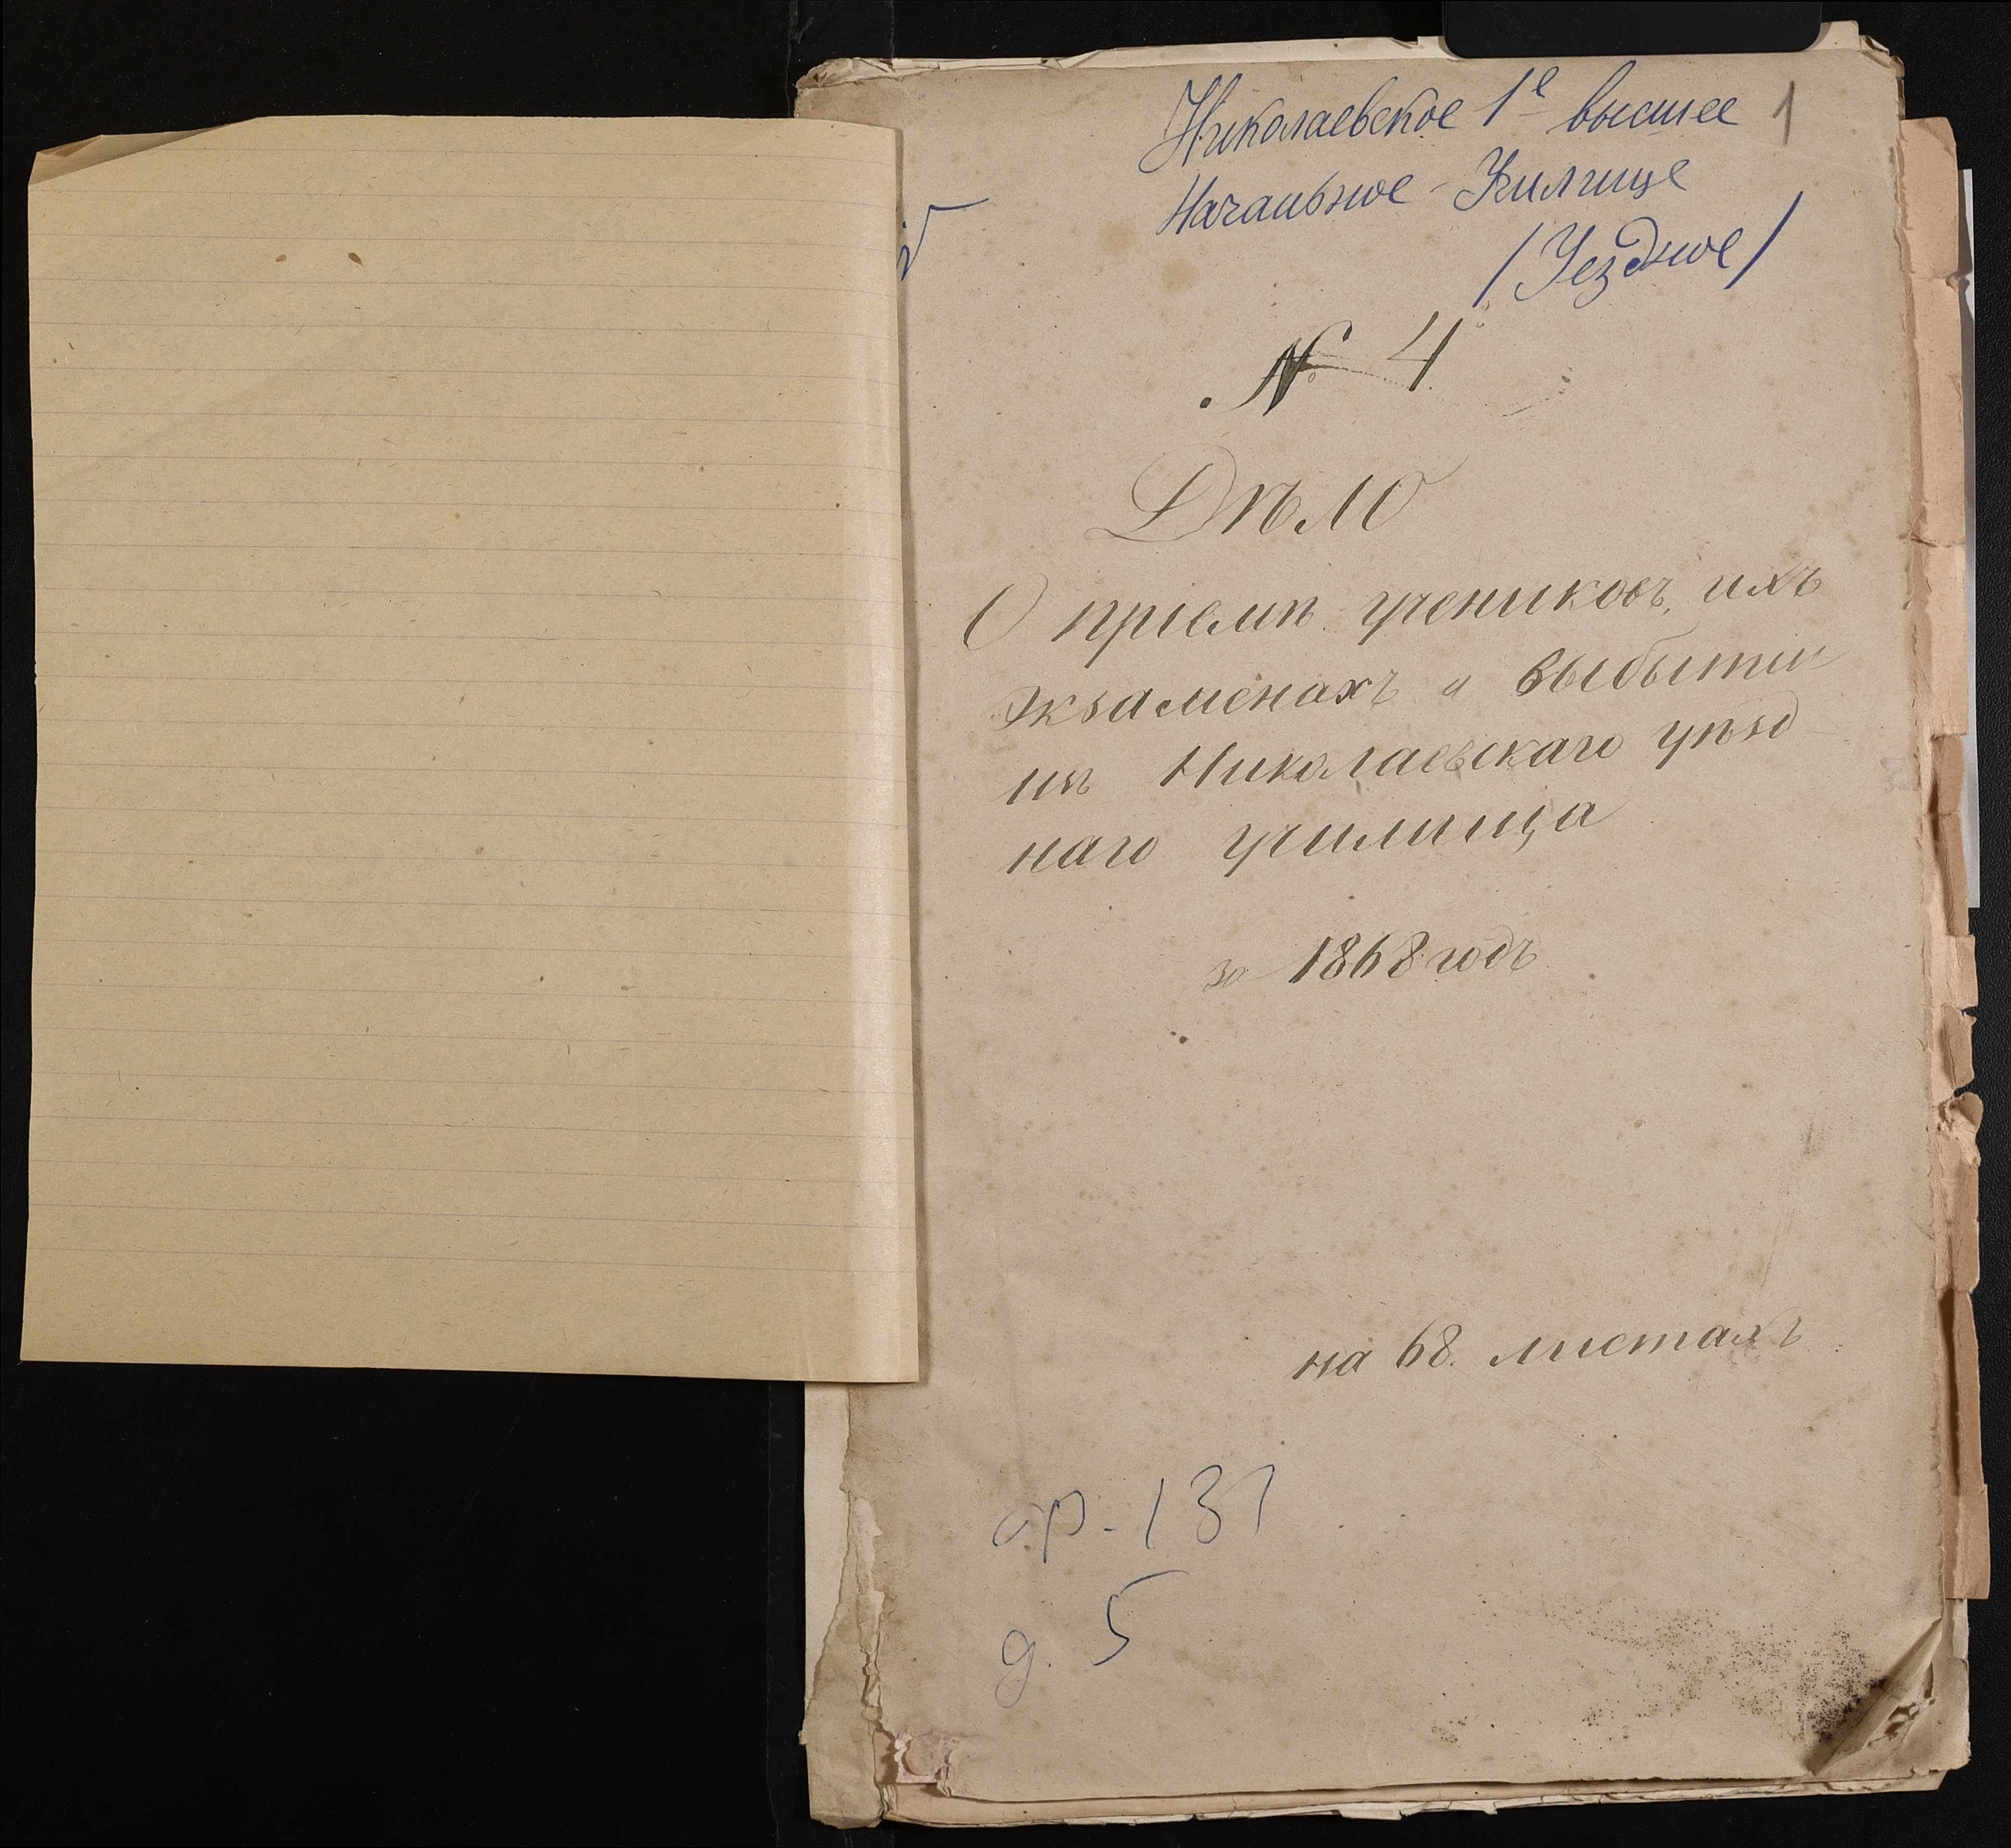 Николаевское 1е высшее 1
Начальное - Училище
/Уездное/
№ 4
Дѣло
О пріемѣ учениковъ, ихъ
экзаменахъ и выбытіи
изъ Николаевскаго уѣзд
наго училища
за 1868 годъ
на 68. листахъ
ор. 131
д. 5